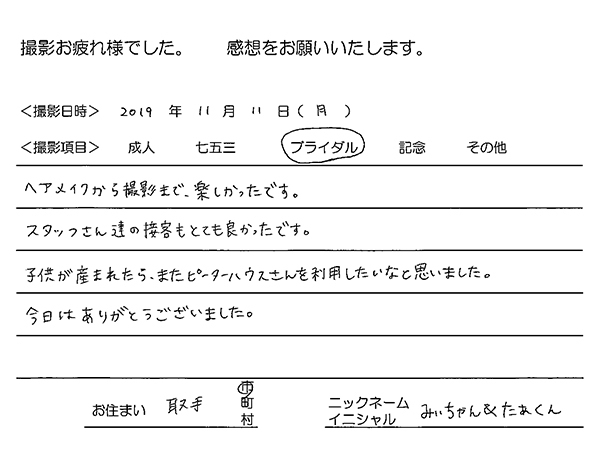 撮影お疲れ様でした。　感想をお願いいたします。
＜撮影日時＞ 2019 年 11 月 11 日（月）
＜撮影項目＞ 成人 七五三 ブライダル 記念 その他
ヘアメイクから撮影まで、楽しかったです。
スタッフさん達の接客もとても良かったです。
子供が産まれたら、またピーターハウスさんを利用したいなと思いました。
今日はありがとうございました。
お住まい 取手 市 町 村
ニックネーム イニシャル みぃちゃん&たぁくん